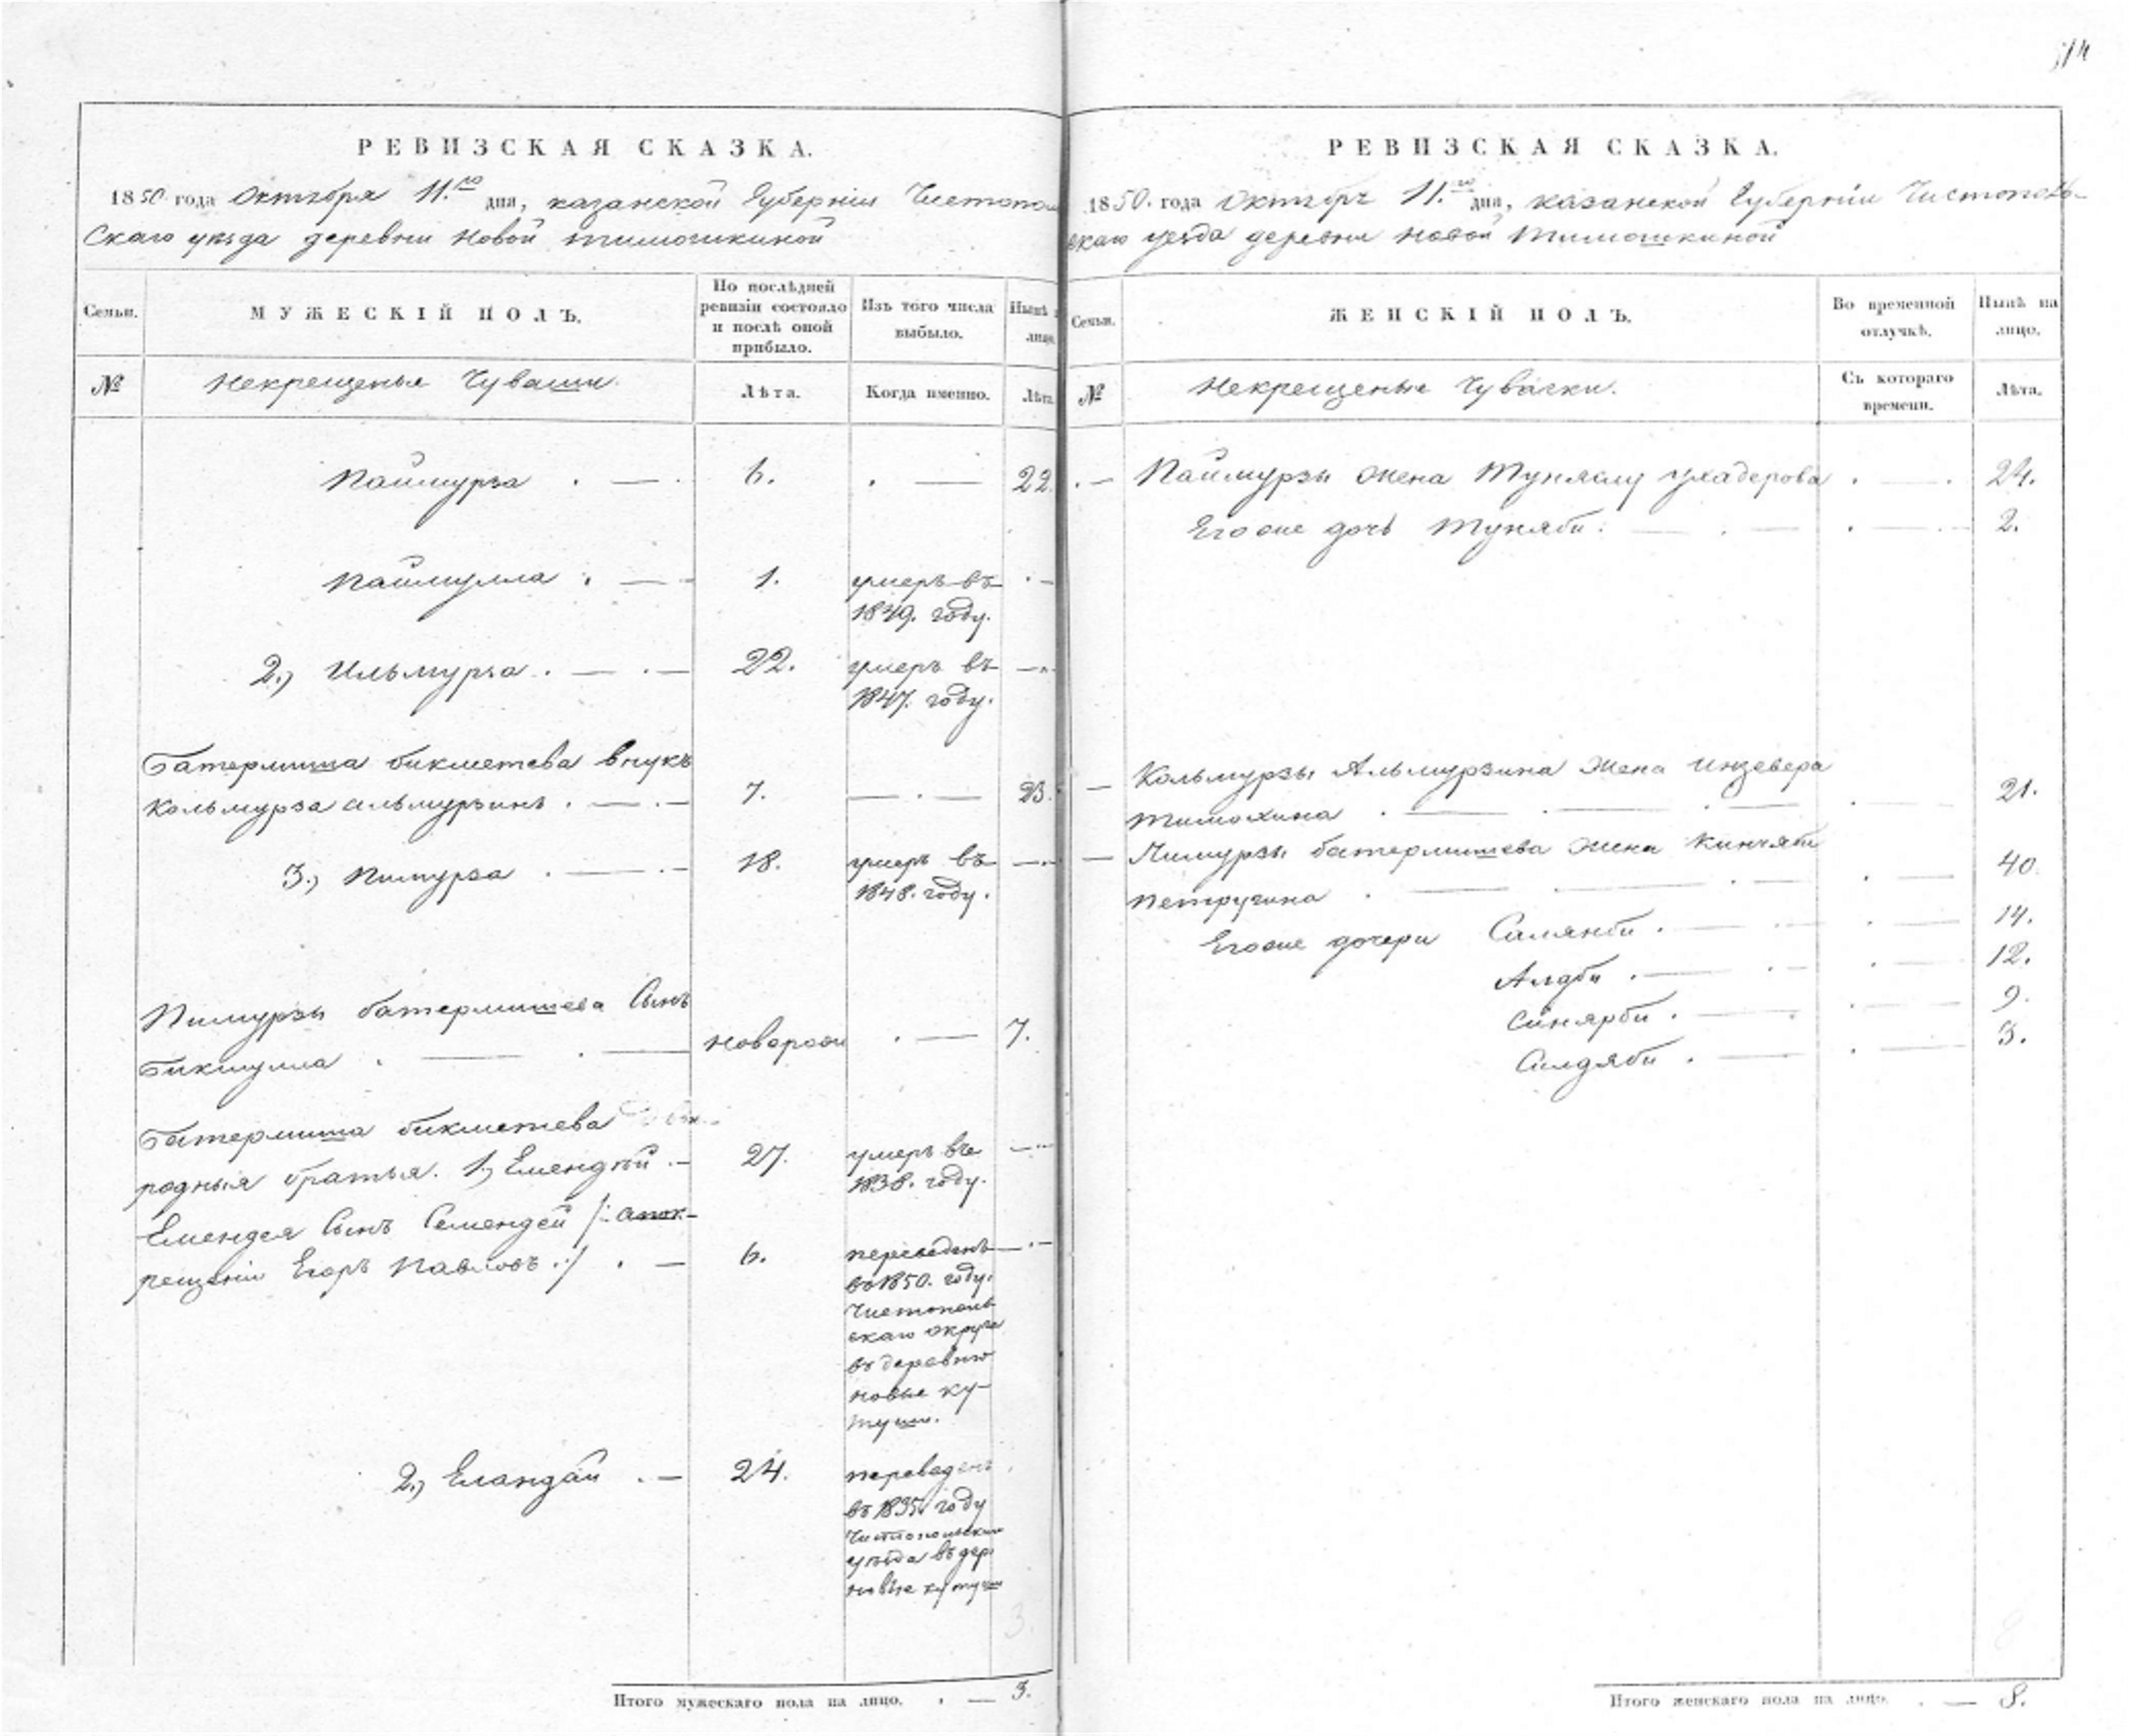 РЕВИЗСКАЯ СКАЗКА.
1850 года Октября 11.го дня, казанской Губернии Чистопол
Скаго уезда деревни Новой тимошкиной
Семьи.
МУЖЕСКІЙ ПОЛЪ.
По послѣдней ревизіи состояло и послѣ оной прибыло.
Изъ того числа выбыло.
Нынѣ лицо
№
Некрещеныя Чуваши.
Лѣта.
Когда именно.
Лѣта
Паймурза . — . 6. . — 22.
Паймулла . — 1. умеръ въ . —
1849. году.
2.) Ильмурза . — . — 22. умеръ въ —..
1847. году.
Батермиша бикметева внукъ
Кольмурза альмурзинъ . — . — 7. — . — 23.
3.) Пимурза . — . — 18. умеръ въ —..
1848. году.
Пимурзы батермишева Сынъ
Бикмулла . — . — новорож . — 7.
Батермиша бикметева
родныя братья. 1.) Емендей . — 27. умеръ въ —..
1838. году.
Емендея Сынъ Семендей /: апок-
рещении Егоръ Павловъ :/ . — 6. переведенъ — . —
въ 1850. году.
Чистополь
скаго округа
въ деревню
новые ку-
туши.
2.) Еландай . — 24. переведенъ
въ 1835. году
Чистопольскаго
уезда въ дер.
новые кутуши
3.
Итого мужескаго пола на лицо. . — 3.
РЕВИЗСКАЯ СКАЗКА.
1850. года Октября 11.го дня, казанской Губерніи Чистополь-
скаго уезда деревни новой Тимошкиной
Семьи.
ЖЕНСКІЙ ПОЛЪ.
Во временной отлучкѣ.
Нынѣ на лицо.
№
Некрещеные Чувашки.
Съ котораго времени.
Лѣта.
. — Паймурзы жена Тунясму . — . 24.
Его же дочь Туняби . — . — . — 2.
— Кольмурзы Альмурзина жена Инзевера
тимохина . — . — . — . — 21.
— Пимурзы батермишева жена Кинчяби
петругина . — . — . — 40.
Его же дочери Салянби . — . — 14.
Алдби . — . — . — 12.
Синярби . — . — 9.
Силдяби . — . — 3.
8
Итого женскаго пола на лицо. . — 8.